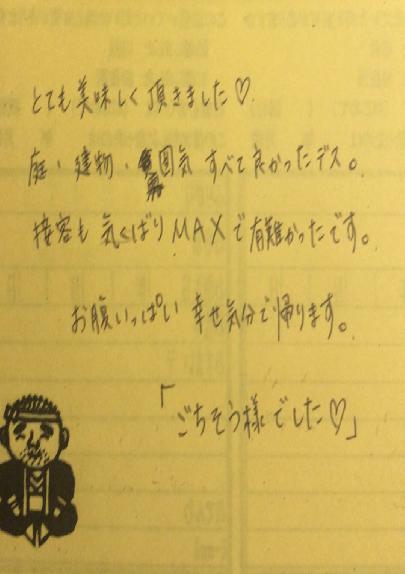 とても美味しく頂きました♡
庭・建物・雰囲気 すべて良かったデス。
接客も気くばりMAXで有難かったです。
お腹いっぱい 幸せ気分で帰ります。
「ごちそう様でした♡」